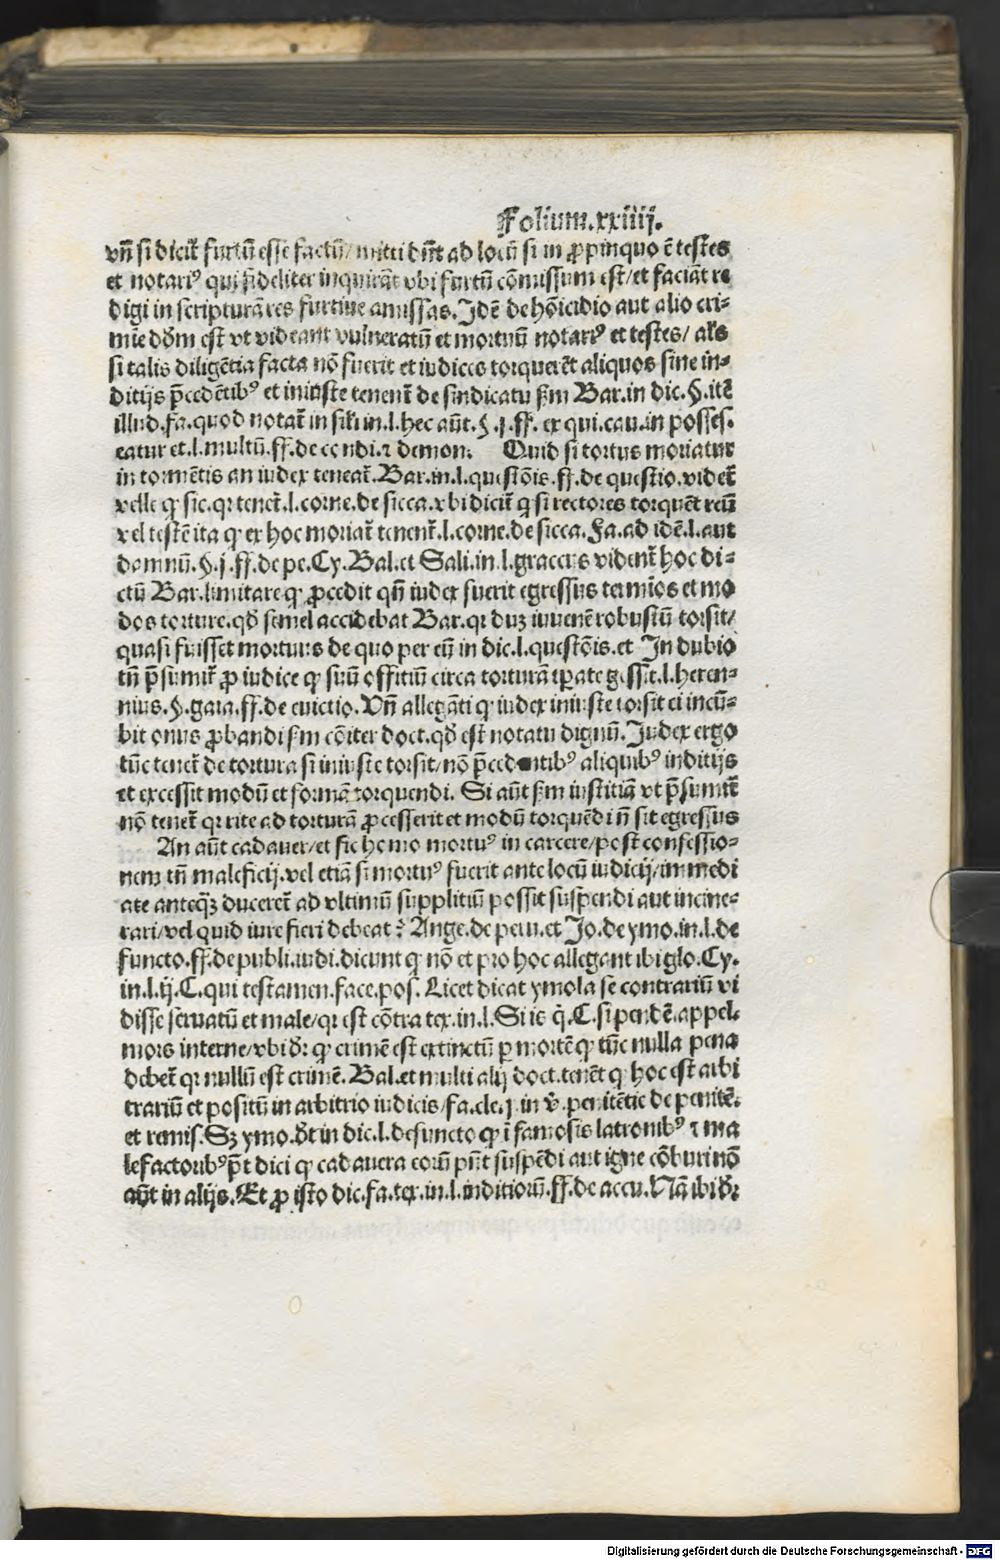 Folium.xxiiij.
vn̄ si dicit̄ furtū esse factū/ mitti dn̄t ad locū si in ꝓpinquo ē testes
et notariꝰ qui fideliter inquirāt vbi furtū cōmissum est/et faciāt re
digi in scripturā res furtiue amissas. Idē de hōicidio aut alio cri⸗
mīe dꝺm est vt videant vulneratū et mortuū notariꝰ et testes/ al's
si talis diligētia facta nō fuerit et iudices torquerēt aliquos sine in⸗
ditijs p̄cedētibꝰ et iniuste tenent̄ de sindicatu ẜm Bar.in dic.§.itē
illud.fa.quod notat̄ in sili in.l.hec aūt.§.j.ff. ex qui.cau.in posses.
eatur et.l.multū.ff.de condi.⁊ demon. Quid si tortus moriatur
in tormētis an iudex teneat̄.Bar.in.l.questōis.ff.de questio.videt̄
velle ꝙ sic.qꝛ tenet̄.l.corne.de sicca.vbi dicit̄ ꝙ si rectores torquēt reū
vel testē ita ꝙ ex hoc moriat̄ tenent̄.l.corne.de sicca. Fa.ad idē.l.aut
damnū.§.j.ff.de pe.Cy.Bal.et Sali.in.l.graccus vident̄ hoc di⸗
ctū Bar.limitare ꝙ ꝓcedit qn̄ iudex fuerit egressus termīos et mo
dos torture.qꝺ semel accidebat Bar.qꝛ duꝫ iuuenē robustū torsit/
quasi fuisset mortuus de quo per eū in dic.l.questōis.et In dubio
tn̄ p̄sumit̄ ꝓ iudice ꝙ suū offitiū circa torturā tꝑate gessit.l.heren⸗
nius.§.gaia.ff.de euictio.Vn̄ alleganti ꝙ iudex iniuste torsit ei incū⸗
bit onus ꝓbandi ẜm cōiter doct.qꝺ est notatu dignū.Iudex ergo
tūc tenet̄ de tortura si iniuste torsit/nō p̄cedentibꝰ aliquibꝰ inditijs
et excessit modū et formā torquendi. Si aūt ẜm iustitiā vt p̄sumit̄
nō tenet̄ qꝛ rite ad torturā ꝓcesserit et modū torquēdi n̄ sit egressus
An aūt cadauer/et sic homo mortuꝰ in carcere/post confessio⸗
nem tn̄ maleficij.vel etiā si mortuꝰ fuerit ante locū iudicij/immedi
ate anteqꝫ duceret̄ ad vltimū supplitiū possit suspendi aut incine⸗
rari/vel quid iure fieri debeat? Ange.de peru.et Jo.de ymo.in.l.de
functo.ff.de publi.iudi.dicunt ꝙ nō et pro hoc allegant ibi glo.Cy.
in.l.ij.C.qui testamen.face.pos. Licet dicat ymola se contrariū vi
disse seruatū et male/qꝛ est cōtra tex.in.l.Si is q̄.C.si pendē.appel.
mors interue/vbi dꝛ ꝙ crimē est extinctū p mortē ꝙ tūc nulla pena
debet̄ qꝛ nullū est crimē.Bal.et multi alij doct.tenēt ꝙ hoc est arbi
trariū et positū in arbitrio iudicis/fa.cle.j.in v̄.penitētie de penitē.
et remis.Sꝫ ymo.ꝺt in dic.l.defuncto ꝙ ī famosis latronibꝰ ⁊ ma
lefactoribꝰ p̄t dici ꝙ cadauera eorū pn̄t suspēdi aut igne cōburi nō
aūt in alijs.Et ꝓ isto dic.fa.tex.in.l.inditiorū.ff.de accu.Nā ibi dꝛ
Digitalisierung gefördert durch die Deutsche Forschungsgemeinschaft - DFG